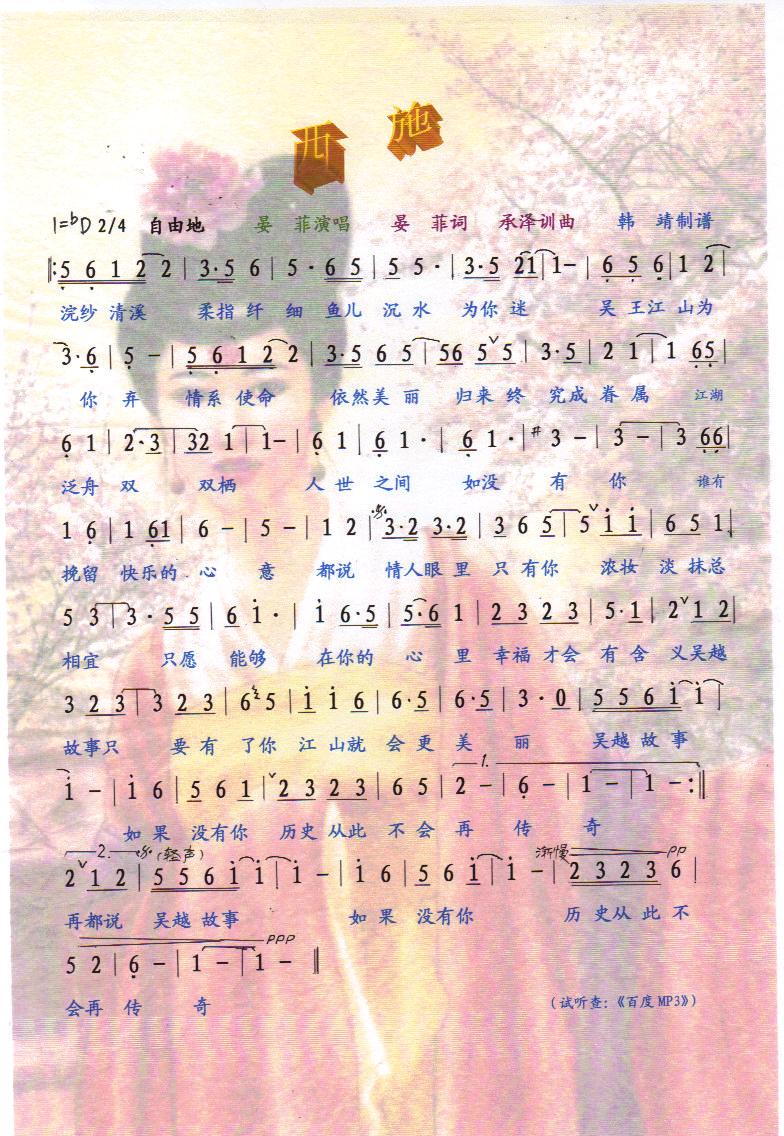 西施
1=bD 2/4 自由地 晏 菲演唱 晏 菲词 承泽训曲 韩 靖制谱
‖: 5 6 1 2 2 | 3·5 6 | 5 · 6 5 | 5 5 · | 3·5 21 | 1– | 6 5 6 | 1 2 |
浣纱 清溪 柔指 纤 细 鱼儿 沉 水 为你 迷 吴 王江 山为
3·6 | 5 – | 5 6 1 2 2 | 3·5 6 5 | 56 5ˇ5 | 3·5 | 2 1 | 1 65 |
你 弃 情系 使命 依然美 丽 归来 终 究成 眷 属 江湖
6 1 | 2·3 | 32 1 | 1– | 6 1 | 6 1 · | 6 1 · | #3 – | 3 – | 3 66 |
泛舟 双 双栖 人 世 之间 如没 有 你 谁有
1 6 | 1 61 | 6 – | 5 – | 1 2 | 3·2 3·2 | 3 6 5 | 5ˇi i | 6 5 1 |
挽留 快乐的 心 意 都说 情人眼 里 只 有你 浓妆 淡 抹总
5 3 | 3 · 5 5 | 6 i · | i 6·5 | 5·6 1 | 2 3 2 3 | 5·1 | 2ˇ1 2 |
相宜 只愿 能够 在你的 心 里 幸福 才会 有 含 义吴越
3 2 3 | 3 2 3 | 6 5 | i i 6 | 6·5 | 6·5 | 3 · 0 | 5 5 6 i | i |
故事只 要 有 了你 江 山就 会 更 美 丽 吴越 故 事
i – | i 6 | 5 6 1 |ˇ2 3 2 3 | 6 5 | 1. 2 – | 6 – | 1 – | 1 – :‖
如 果 没有你 历史 从此 不 会 再 传 奇
2. (轻声) 渐慢 pp
2ˇ1 2 | 5 5 6 i i | i – | i 6 | 5 6 i | i – | 2 3 2 3 6 |
再都说 吴越 故事 如 果 没有你 历 史从 此 不
ppp
5 2 | 6 – | 1 – | 1 – ‖
会再 传 奇
(试听查:《百度 MP3》)